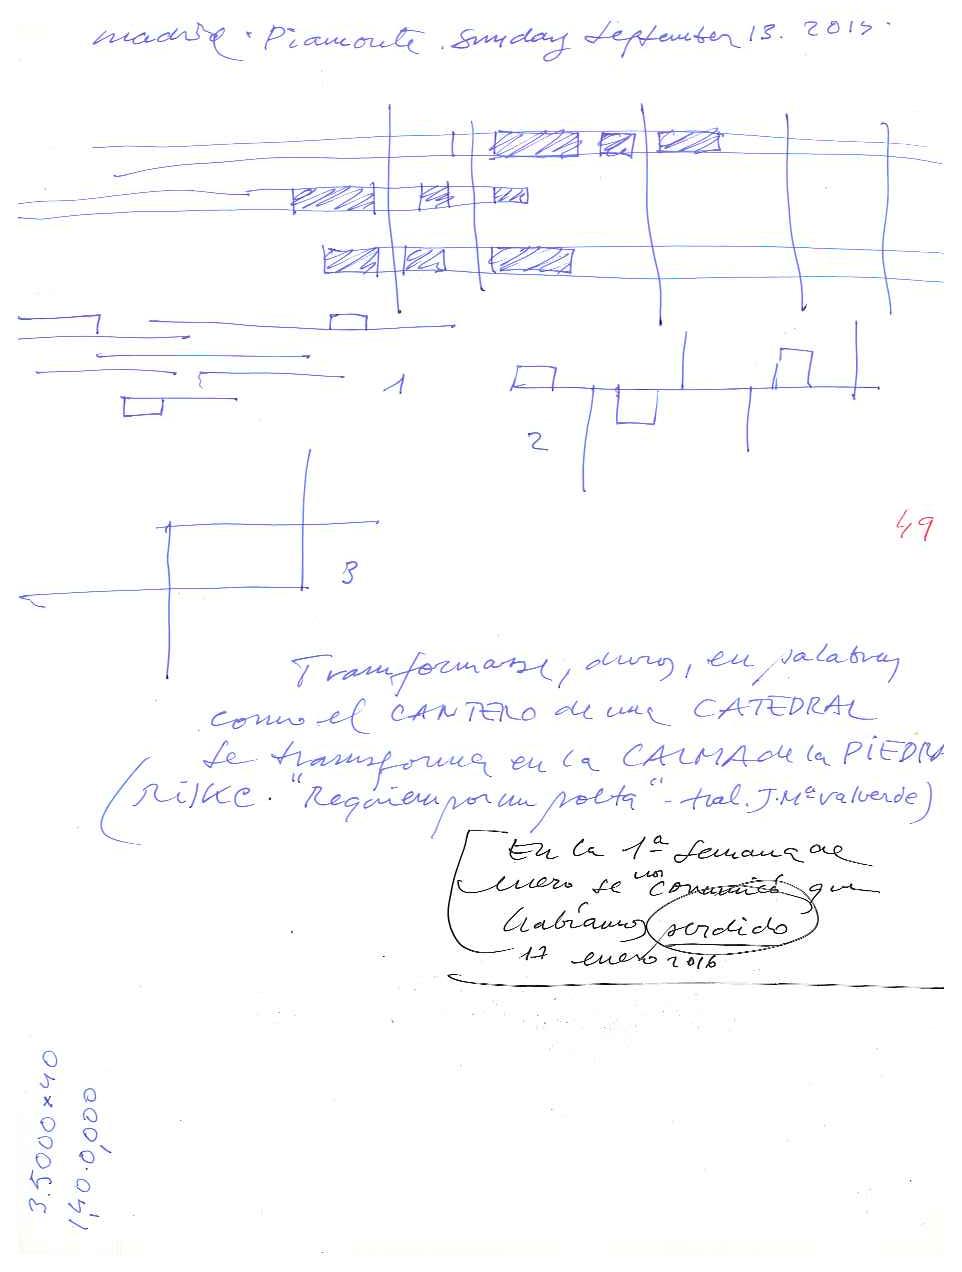 madrid · Piamonte. Sunday September 13. 2015.
1
2
3
49
Transformarse, duros, en palabras
como el CANTERO de una CATEDRAL
se transforma en la CALMA de la PIEDRA
(Rilke. "Requiem por un poeta" - trad. J. Mª Valverde)
En la 1ª semana de
enero se nos comunicó que
habíamos perdido
17 enero 2016
3.5000 × 40
1,40.0,000